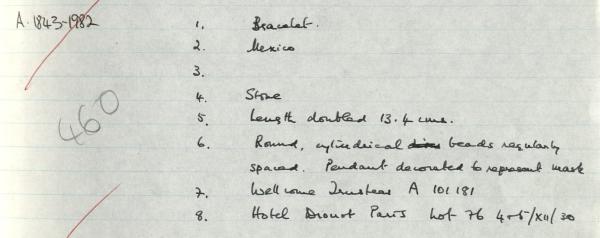 A. 1843-1982
1. Bracelet.
2. Mexico
3.
460
4. Stone
5. Length doubled 13.4 cms.
6. Round, cylindrical beads regularly
spaced. Pendant decorated to represent mask
7. Wellcome Trustees A 101181
8. Hotel Drouot Paris Lot 76 4+5/XII/30